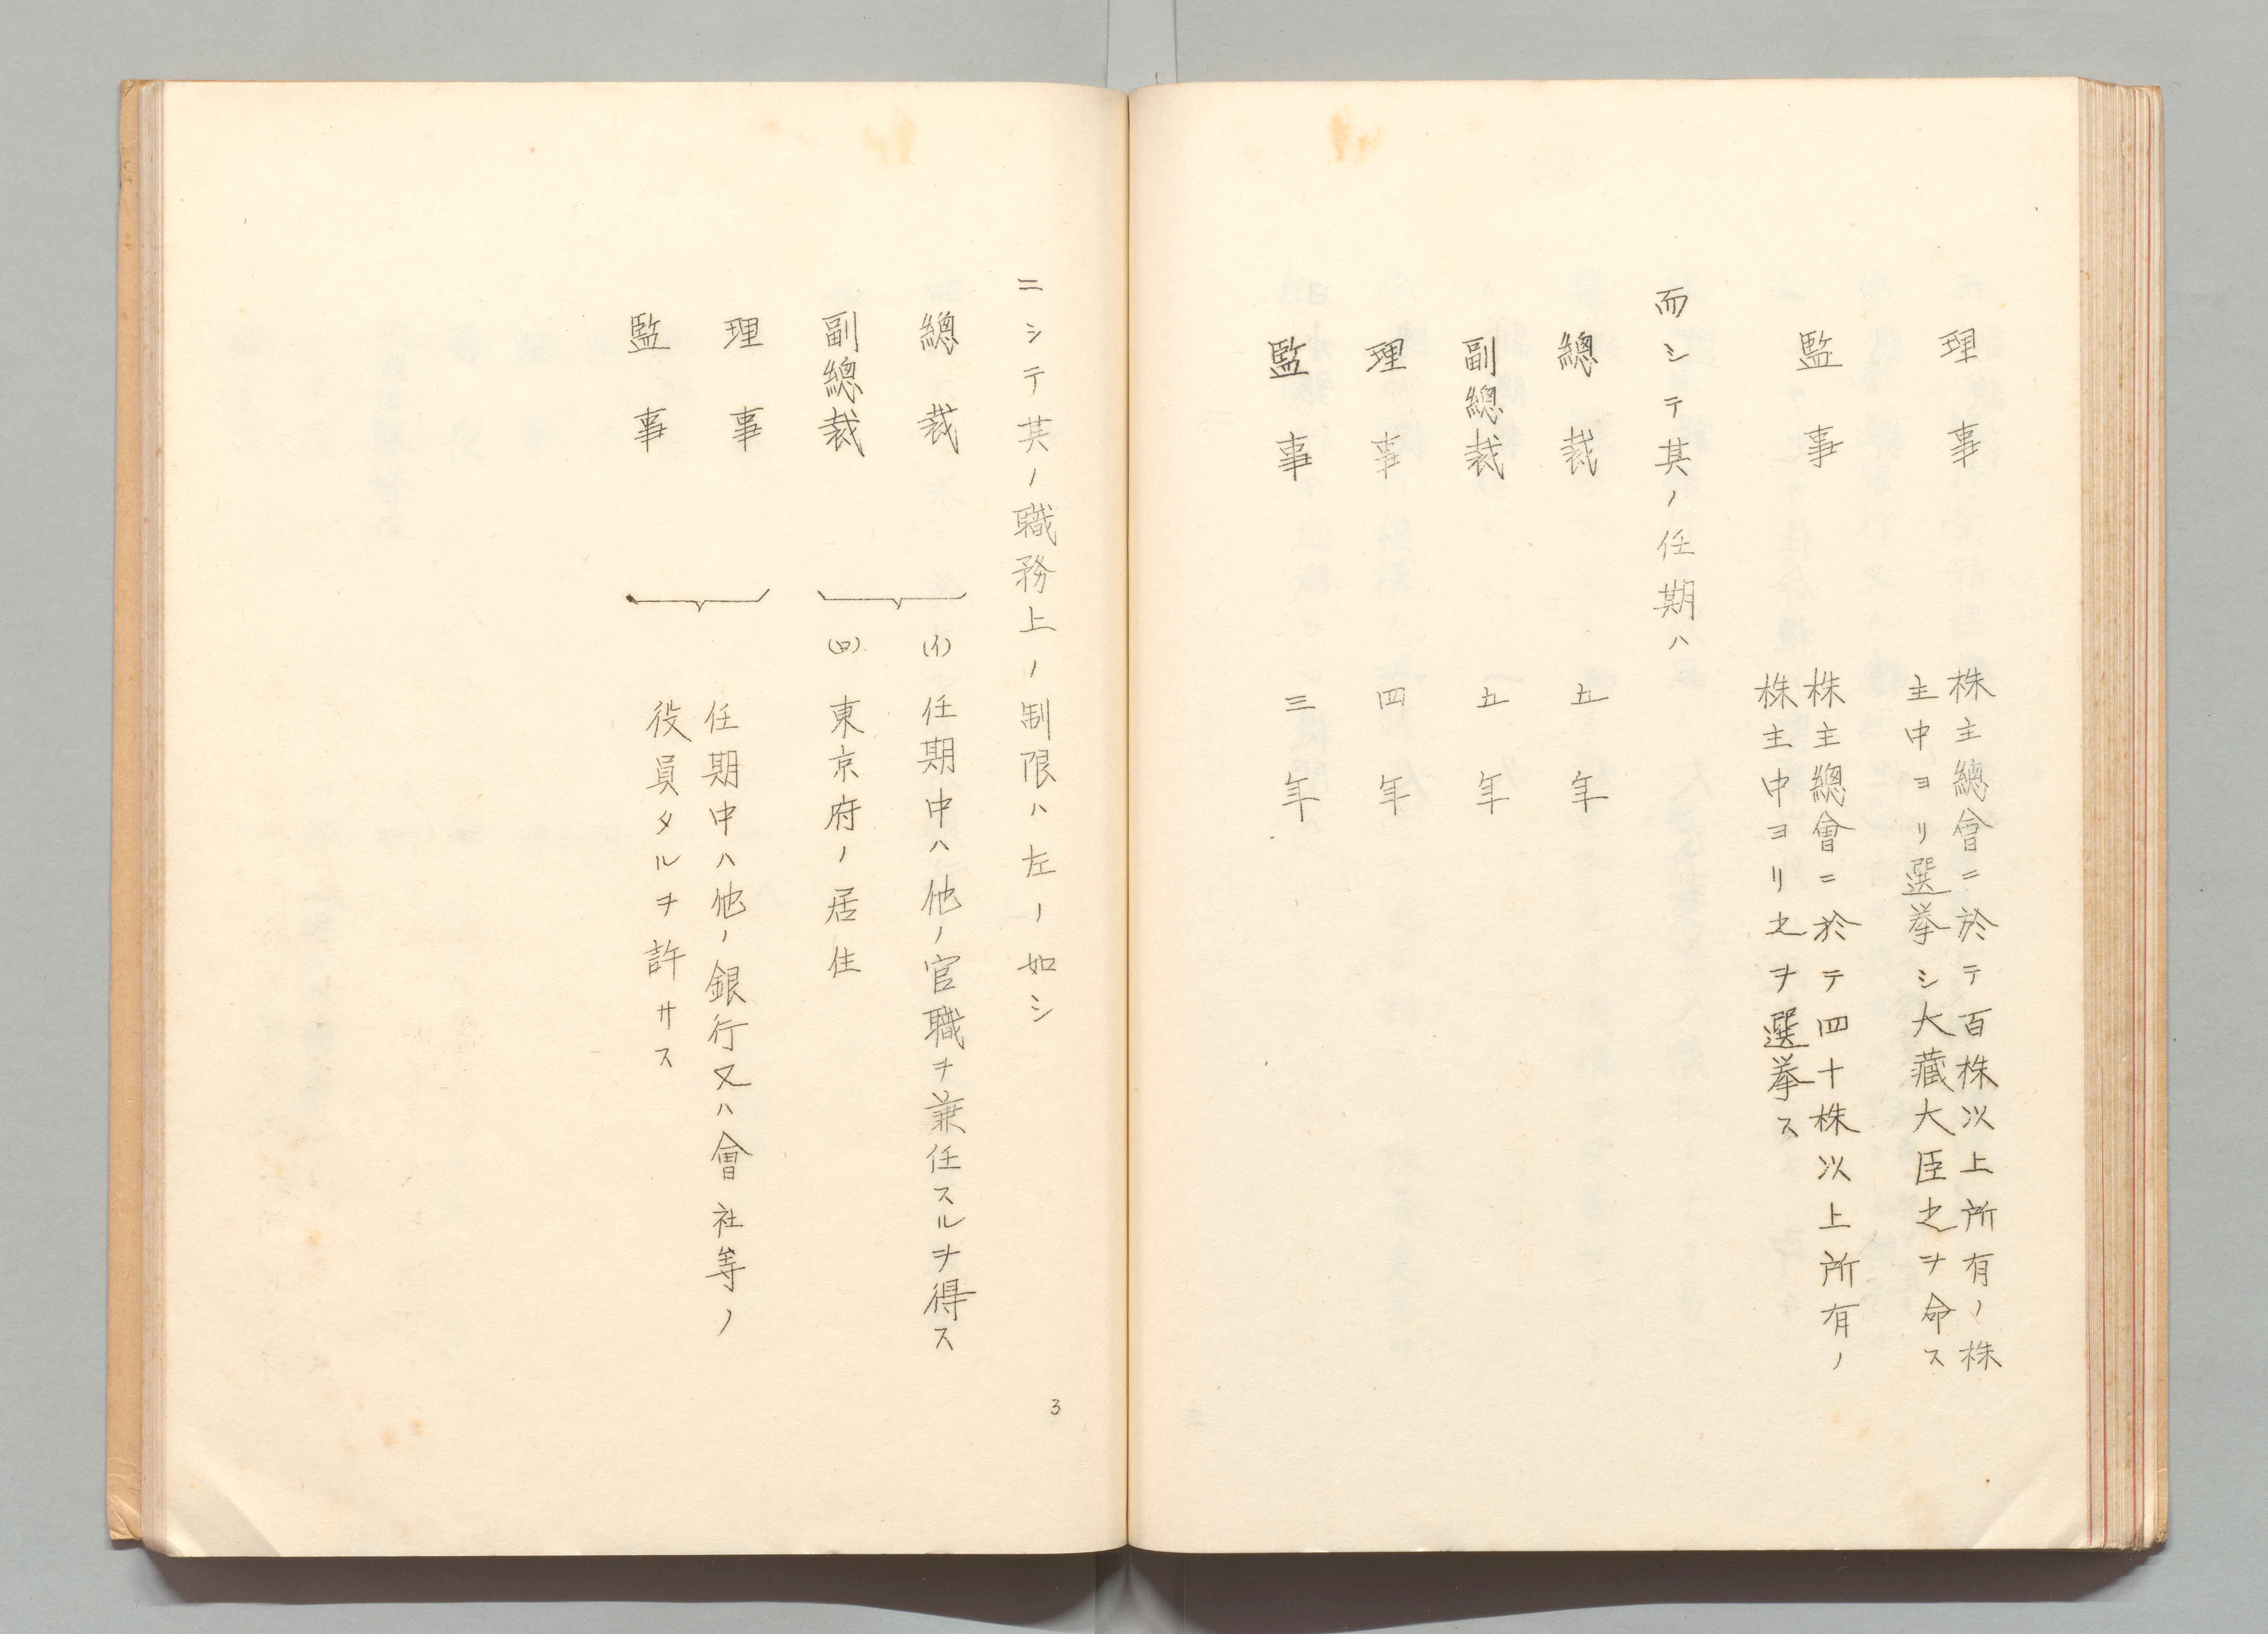 理事　株主總會ニ於テ百株以上所有ノ株
主中ヨリ選挙シ大藏大臣之ヲ命ス
監事　株主總會ニ於テ四十株以上所有ノ
株主中ヨリ之ヲ選挙ス
而シテ其ノ任期ハ
總裁　五年
副總裁　五年
理事　四年
監事　三年
ニシテ其ノ職務上ノ制限ハ左ノ如シ
總裁
副總裁
(イ)　任期中ハ他ノ官職ヲ兼任スルヲ得ス
(ロ)　東京府ノ居住
理事
監事
任期中ハ他ノ銀行又ハ會社等ノ
役員タルヲ許サス
3